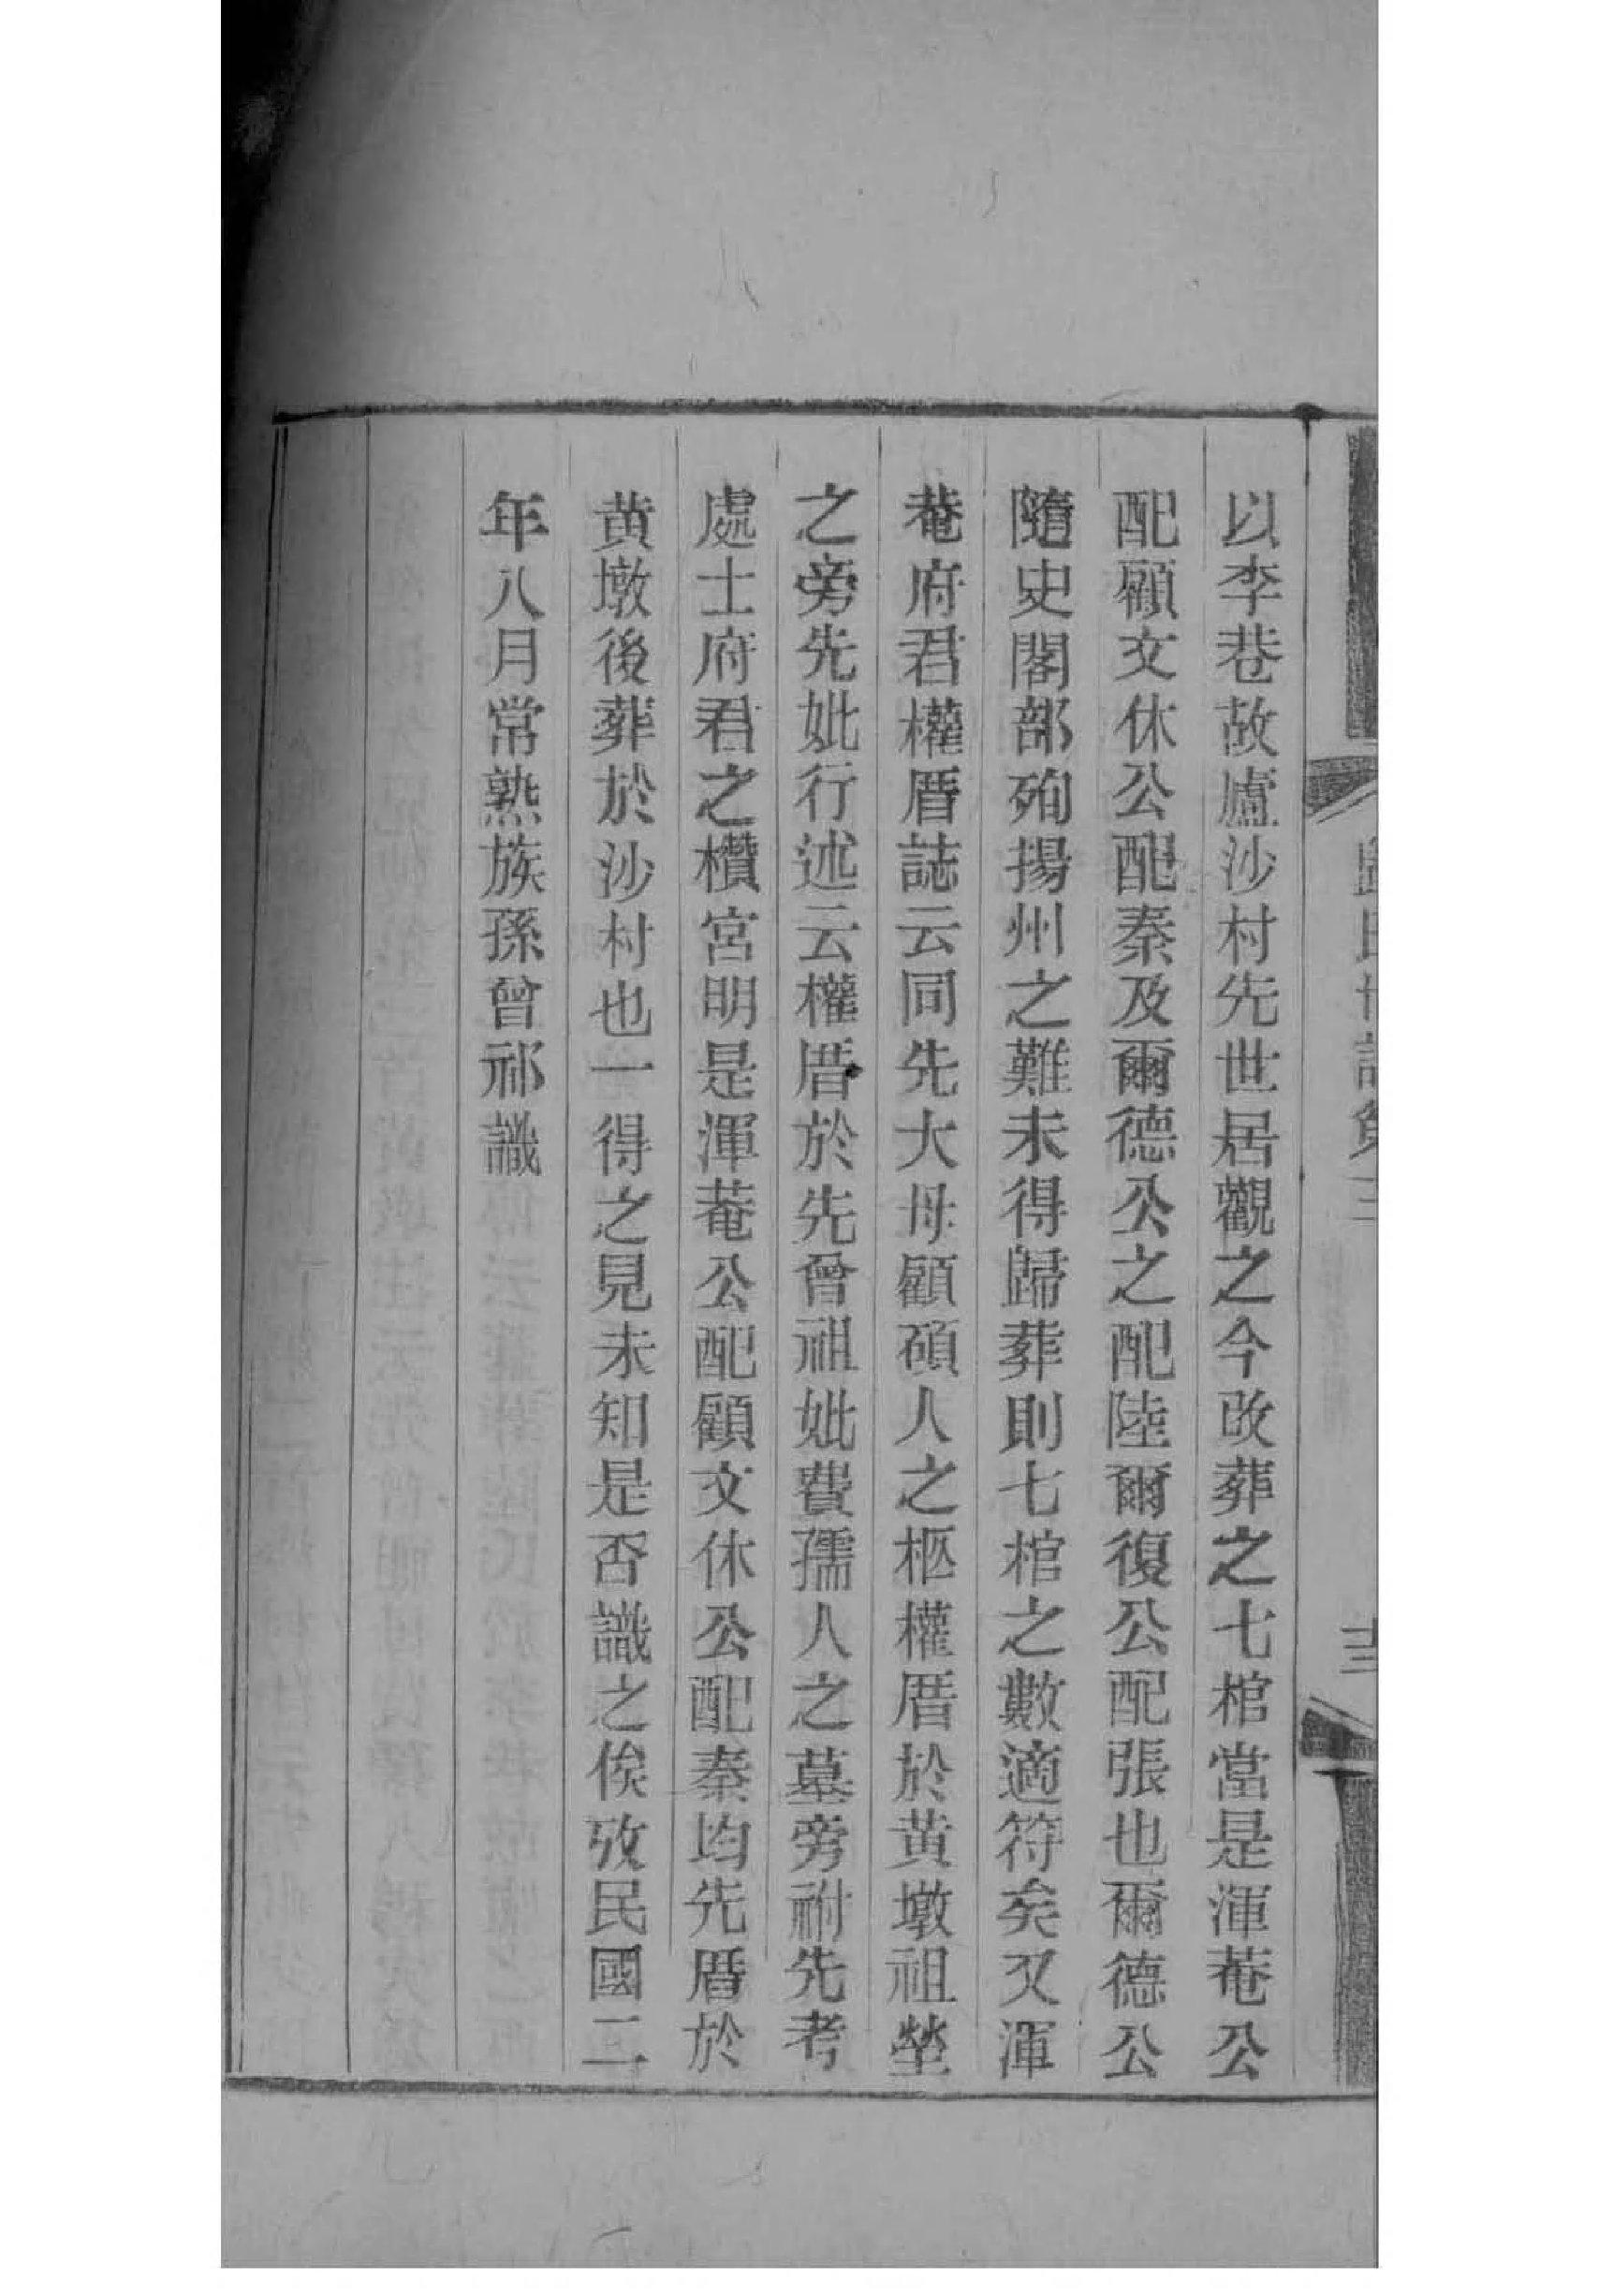 以李巷故廬沙村先世居觀之今改葬之七棺當是渾菴公
配顧文休公配秦及爾德公之配陸爾復公配張也爾德公
隨史閣部殉揚州之難未得歸葬則七棺之數適符矣又渾
菴府君權厝誌云同先大母顧碩人之柩權厝於黄墩祖塋
之旁先妣行述云權厝於先曾祖妣費孺人之墓旁祔先考
處士府君之欑宮明是渾菴公配顧文休公配秦均先厝於
黄墩後葬於沙村也一得之見未知是否識之俟攷民國二
年八月常熟族孫曾祁識
歸氏世譜第三
十三